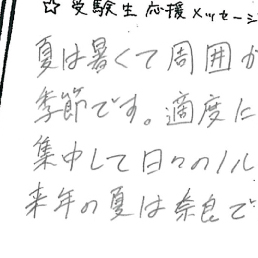 ☆ 受験生応援メッセージ
夏は暑くて周囲が
季節です。適度に
集中して日々のノル
来年の夏は奈良で